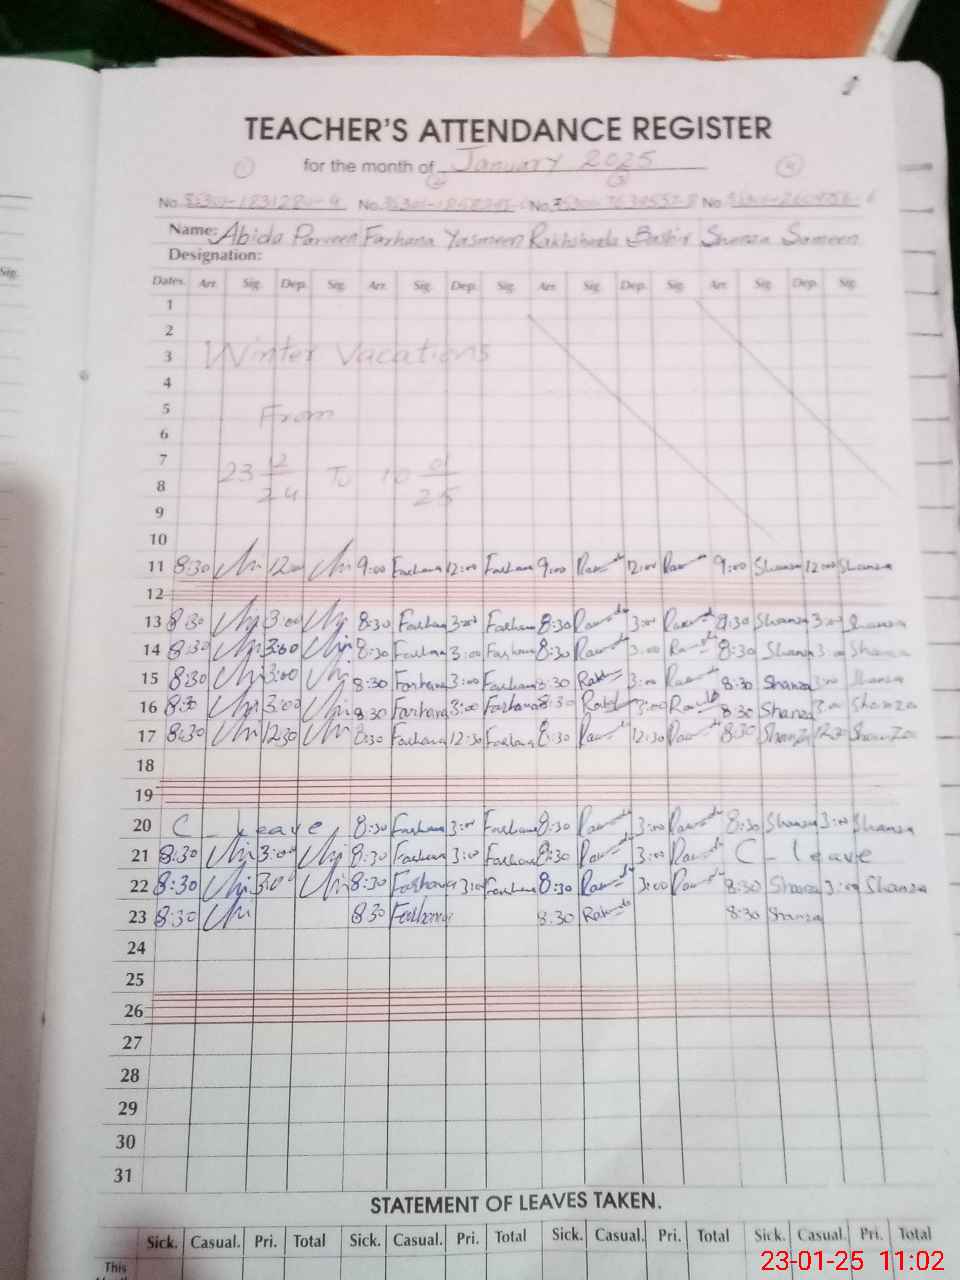 TEACHER'S ATTENDANCE REGISTER
for the month of January 2025
1 2 3 4
No. No. No. No.
Name: Abida Parveen Farhana Yasmeen Rakhshanda Bashir Shanza Sameen
Designation:
Sig.
Dates. Arr. Sig. Dep. Sig. Arr. Sig. Dep. Sig. Arr. Sig. Dep. Sig. Arr. Sig. Dep. Sig.
1
2
3 Winter Vacations
4
5 From
6
7
8 23 12/24 To 10 01/25
9
10
11 8:30 12:00 9:00 Farhana 12:00 Farhana 9:00 12:00 9:00 Shanza 12:00 Shanza
12
13 8:30 3:00 8:30 Farhana 3:00 Farhana 8:30 3:00 8:30 Shanza 3:00 Shanza
14 8:30 3:00 8:30 Farhana 3:00 Farhana 8:30 3:00 8:30 Shanza 3:00 Shanza
15 8:30 3:00 8:30 Farhana 3:00 Farhana 8:30 3:00 8:30 Shanza 3:00 Shanza
16 8:30 3:00 8:30 Farhana 3:00 Farhana 8:30 3:00 8:30 Shanza 3:00 Shanza
17 8:30 12:30 8:30 Farhana 12:30 Farhana 8:30 12:30 8:30 Shanza 12:30 Shanza
18
19
20 C - leave 8:30 Farhana 3:00 Farhana 8:30 3:00 8:30 Shanza 3:00 Shanza
21 8:30 3:00 8:30 Farhana 3:00 Farhana 8:30 3:00 C - leave
22 8:30 3:00 8:30 Farhana 3:00 Farhana 8:30 3:00 8:30 Shanza 3:00 Shanza
23 8:30 8:30 Farhana 8:30 8:30 Shanza
24
25
26
27
28
29
30
31
STATEMENT OF LEAVES TAKEN.
Sick. Casual. Pri. Total Sick. Casual. Pri. Total Sick. Casual. Pri. Total Sick. Casual. Pri. Total
This
23-01-25 11:02